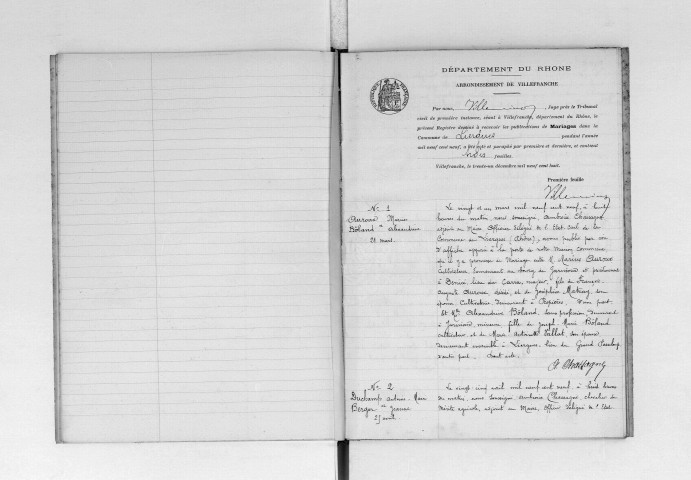 DÉPARTEMENT DU RHONE
ARRONDISSEMENT DE VILLEFRANCHE
Par nous, Juge près le Tribunal
civil de première instance, séant à Villefranche, département du Rhône, le
présent Registre destiné à recevoir les publications de Mariages dans la
Commune de Liergues pendant l'année
mil neuf cent neuf, a été coté et paraphé par première et dernière, et contient
trois feuilles.
Villefranche, le trente-un décembre mil neuf cent huit.
Première feuille
N° 1
Auroux Marius
Boland Alexandrine
21 mars.
Le vingt et un mars mil neuf cent neuf, à huit
heures du matin, nous soussigné, Ambroise Chassagne
adjoint au Maire Officier délégué de l'Etat Civil de la
Commune de Liergues (Rhône), avons publié par voie
d'affiche apposée à la porte de notre Maison Commune,
qu'il y a promesse de Mariage entre M. Marius Auroux
Cultivateur, demeurant au Bourg de Jarnioux et précédemment
à Denicé lieu de Carra, majeur, fils de François
Auguste Auroux décédé, et de Joséphine son
épouse Cultivatrice, demeurant à D'une part
Et Mlle Alexandrine Boland, sans profession demeurant
à Jarnioux, mineure, fille de Joseph Marie Boland
cultivateur et de Marie Antoinette Vallot son épouse
demeurant ensemble à Liergues, lieu du Grand
d'autre part. Dont acte.
A. Chassagne
N° 2
Duchamp Antoine Marie
Berger Jeanne
25 avril
Le vingt cinq avril mil neuf cent neuf à huit heures
du matin, nous soussigné Ambroise Chassagne, chevalier du
Mérite agricole, adjoint au Maire, Officier délégué de l'Etat